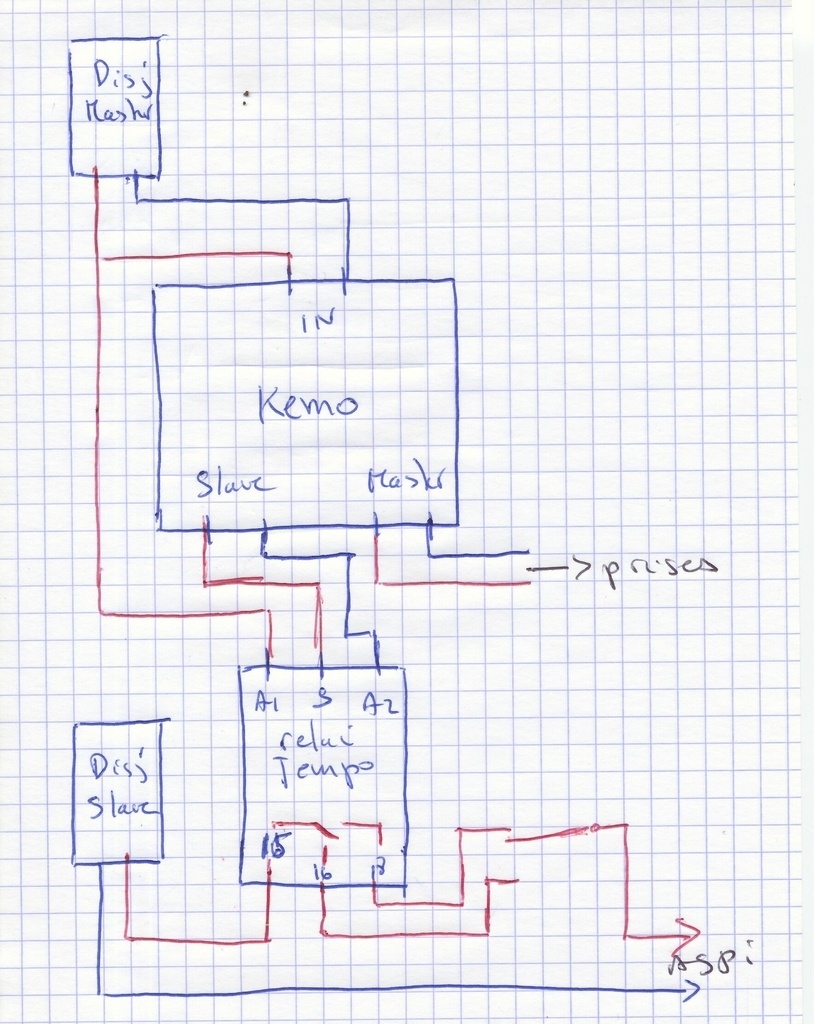 Disj
Master
IN
Kemo
Slave
Master
prises
A1
S
A2
relai
Tempo
Disj
Slave
15
16
18
ASPi